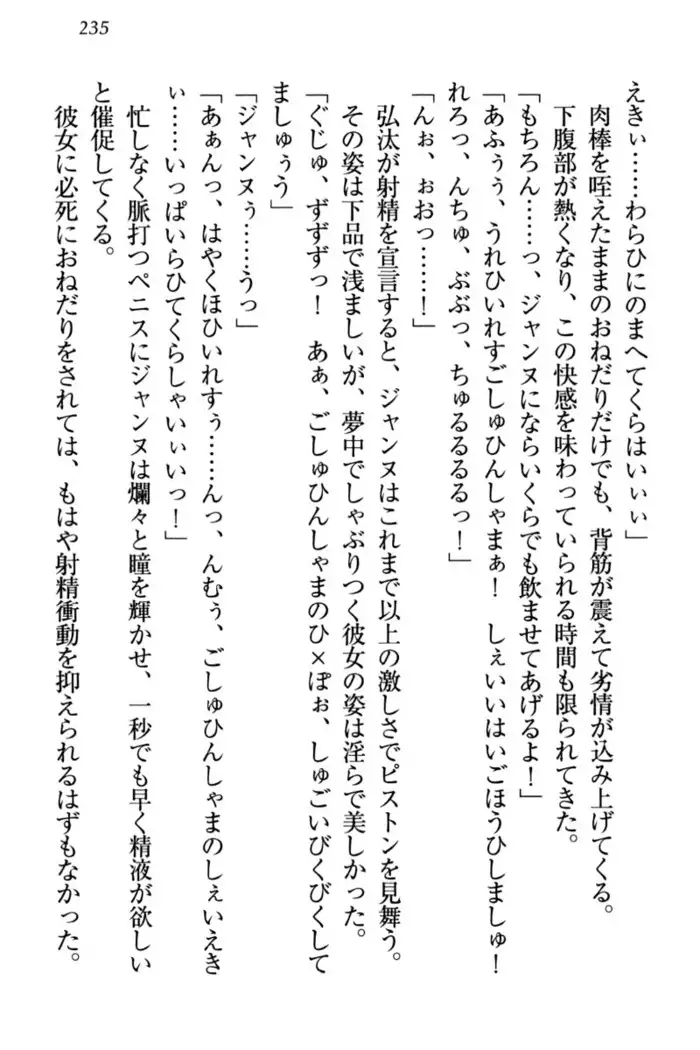 235
えきぃ……わらひにのまへてくらはいぃぃ」
肉棒を咥えたままのおねだりだけでも、背筋が震えて劣情が込み上げてくる。
下腹部が熱くなり、この快感を味わっていられる時間も限られてきた。
「もちろん……っ、ジャンヌにならいくらでも飲ませてあげるよ！」
「あふぅぅ、うれひいれすごしゅひんしゃまぁ！　しぇいいはいごほうひしましゅ！
れろっ、んちゅ、ぶぶっ、ちゅるるるるっ！」
「んぉ、ぉおっ……！」
弘汰が射精を宣言すると、ジャンヌはこれまで以上の激しさでピストンを見舞う。
その姿は下品で浅ましいが、夢中でしゃぶりつく彼女の姿は淫らで美しかった。
「ぐじゅ、ずずずっ！　あぁ、ごしゅひんしゃまのひ×ぽぉ、しゅごいびくびくして
ましゅぅう」
「ジャンヌぅ……うっ」
「あぁんっ、はやくほひいれすぅ……んっ、んむぅ、ごしゅひんしゃまのしぇいえき
ぃ……いっぱいらひてくらしゃいぃいっ！」
忙しなく脈打つペニスにジャンヌは爛々と瞳を輝かせ、一秒でも早く精液が欲しい
と催促してくる。
彼女に必死におねだりをされては、もはや射精衝動を抑えられるはずもなかった。